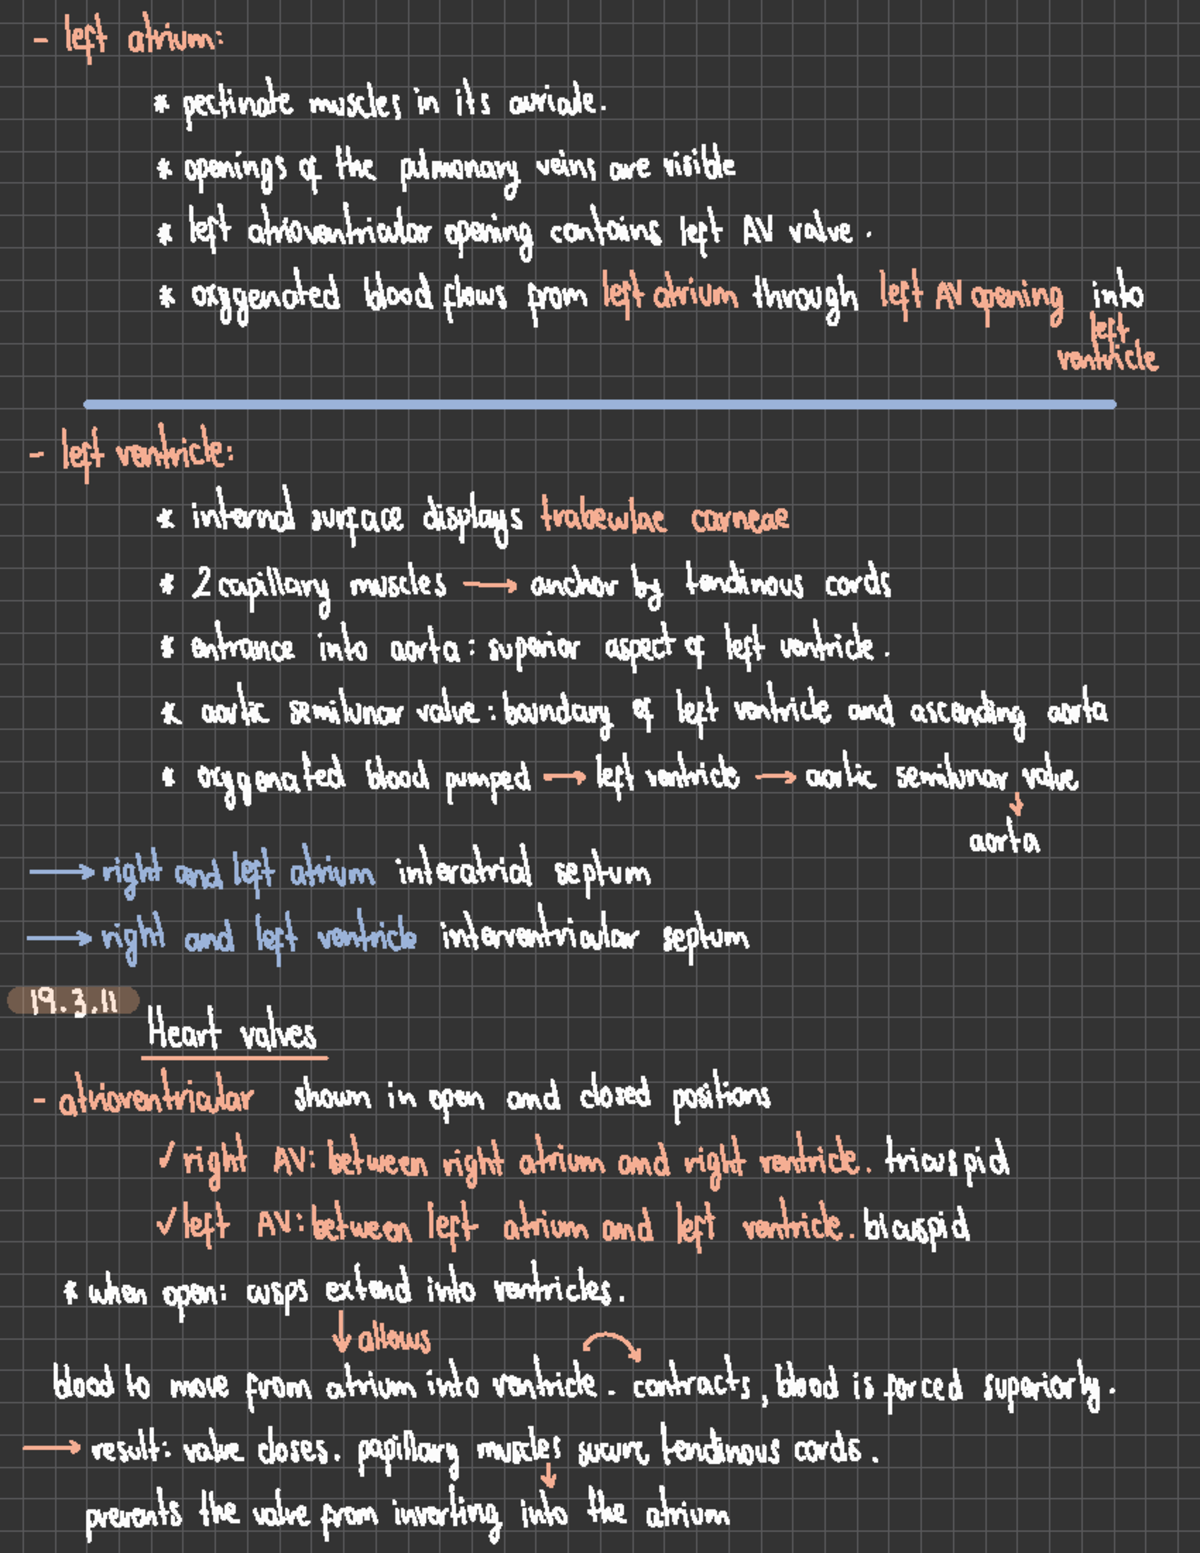 - left atrium:
* pectinate muscles in its auricle.
* openings of the pulmonary veins are visible
* left atrioventricular opening contains left AV valve.
* oxygenated blood flows from left atrium through left AV opening into
left
ventricle
- left ventricle:
* internal surface displays trabeculae carneae
* 2 capillary muscles → anchor by tendinous cords
* entrance into aorta: superior aspect of left ventricle.
* aortic semilunar valve: boundary of left ventricle and ascending aorta
* oxygenated blood pumped → left ventricle → aortic semilunar valve
↓
aorta
→ right and left atrium interatrial septum
→ right and left ventricle interventricular septum
19.3.11
Heart valves
- atrioventricular shown in open and closed positions
✓ right AV: between right atrium and right ventricle. tricuspid
✓ left AV: between left atrium and left ventricle. bicuspid
* when open: cusps extend into ventricles.
↓ allows
blood to move from atrium into ventricle. contracts, blood is forced superiorly.
→ result: valve closes. papillary muscles secure tendinous cords.
↓
prevents the valve from inverting into the atrium